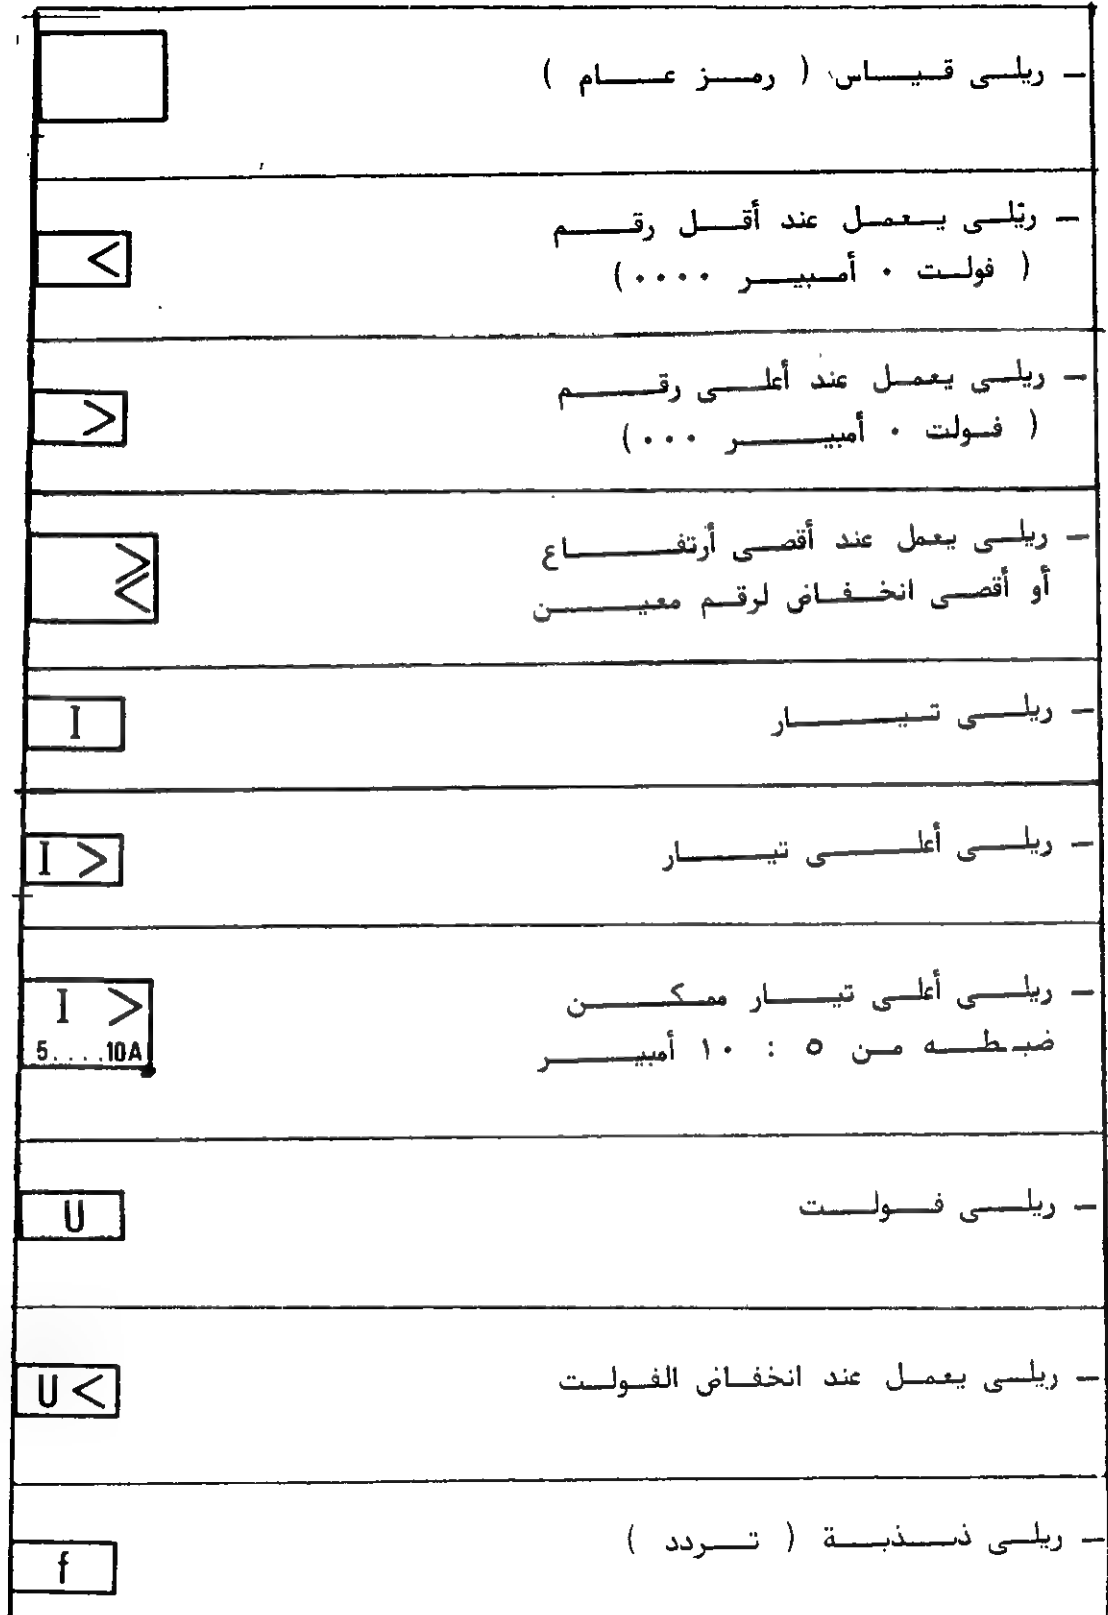 – ريلى قياس ( رمز عام )
– ريلى يعمل عند أقل رقم
( فولت ٠ أمبير ٠٠٠٠ )
<
– ريلى يعمل عند أعلى رقم
( فولت ٠ أمبير ٠٠٠ )
>
– ريلى يعمل عند أقصى أرتفاع
أو أقصى انخفاض لرقم معين
>
<
– ريلى تيار
I
– ريلى أعلى تيار
I >
– ريلى أعلى تيار ممكن
ضبطه من ٥ : ١٠ أمبير
I >
5....10A
– ريلى فولت
U
– ريلى يعمل عند انخفاض الفولت
U <
– ريلى ذبذبة ( تردد )
f